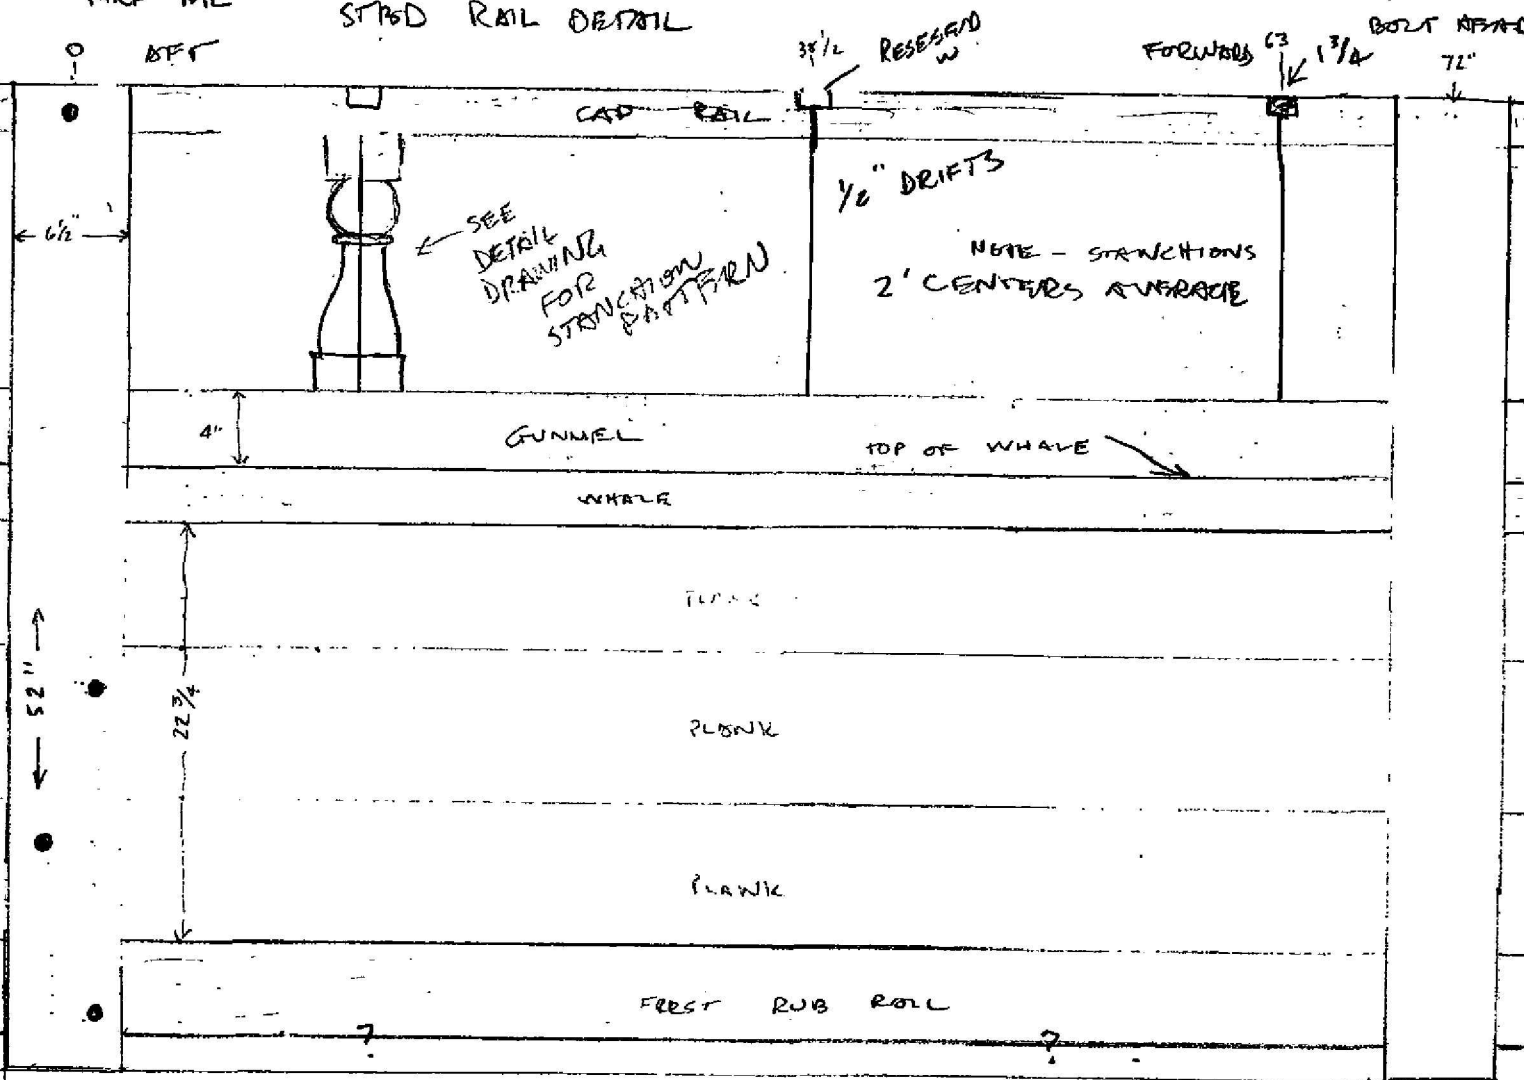 STBD RAIL DETAIL
O
AFT
RESESSED
FORWARD
63
1 3/4
72"
CAP RAIL
1/2" DRIFTS
6 1/2"
SEE
DETAIL
DRAWING
FOR
STANCHION
PATTERN
NOTE - STANCHIONS
2' CENTERS AVERAGE
4"
GUNNEL
TOP OF WHALE
WHALE
52"
22 3/4
PLANK
PLANK
FIRST RUB RAIL
?
?